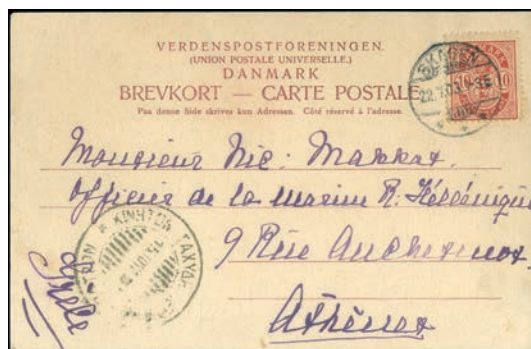 VERDENSPOSTFORENINGEN.
(UNION POSTALE UNIVERSELLE.)
DANMARK
BREVKORT — CARTE POSTALE
Paa denne Side skrives kun Adressen. Côté réservé à l'adresse.
SKAGEN
10 10
Monsieur Nic: Makkas.
Officier de la marine R. Hellénique
9 Rue
Athènes
Grèce
ΚΙΝΗΤΟΝ ΤΑΧΥΔ